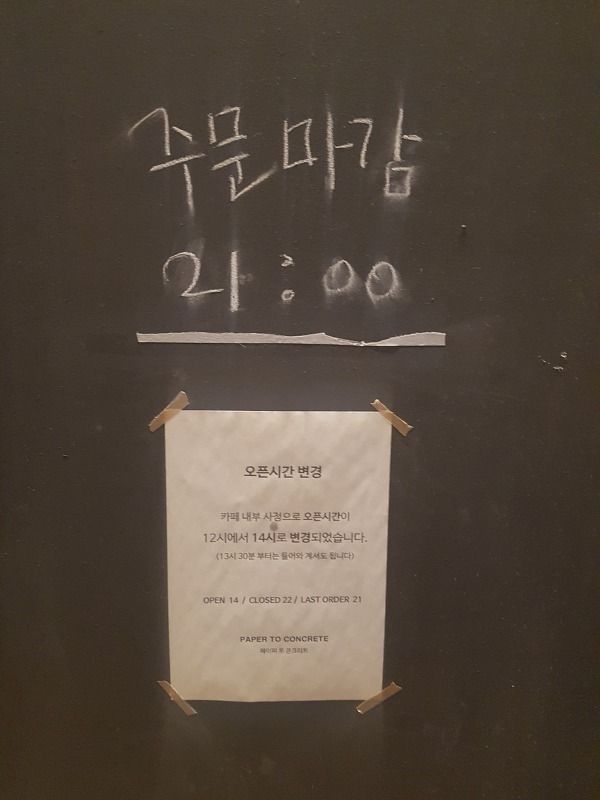 주문마감
21:00
오픈시간 변경
카페 내부 사정으로 오픈시간이
12시에서 14시로 변경되었습니다.
(13시 30분 부터는 들어와 계셔도 됩니다)
OPEN 14 / CLOSED 22 / LAST ORDER 21
PAPER TO CONCRETE
페이퍼 투 콘크리트